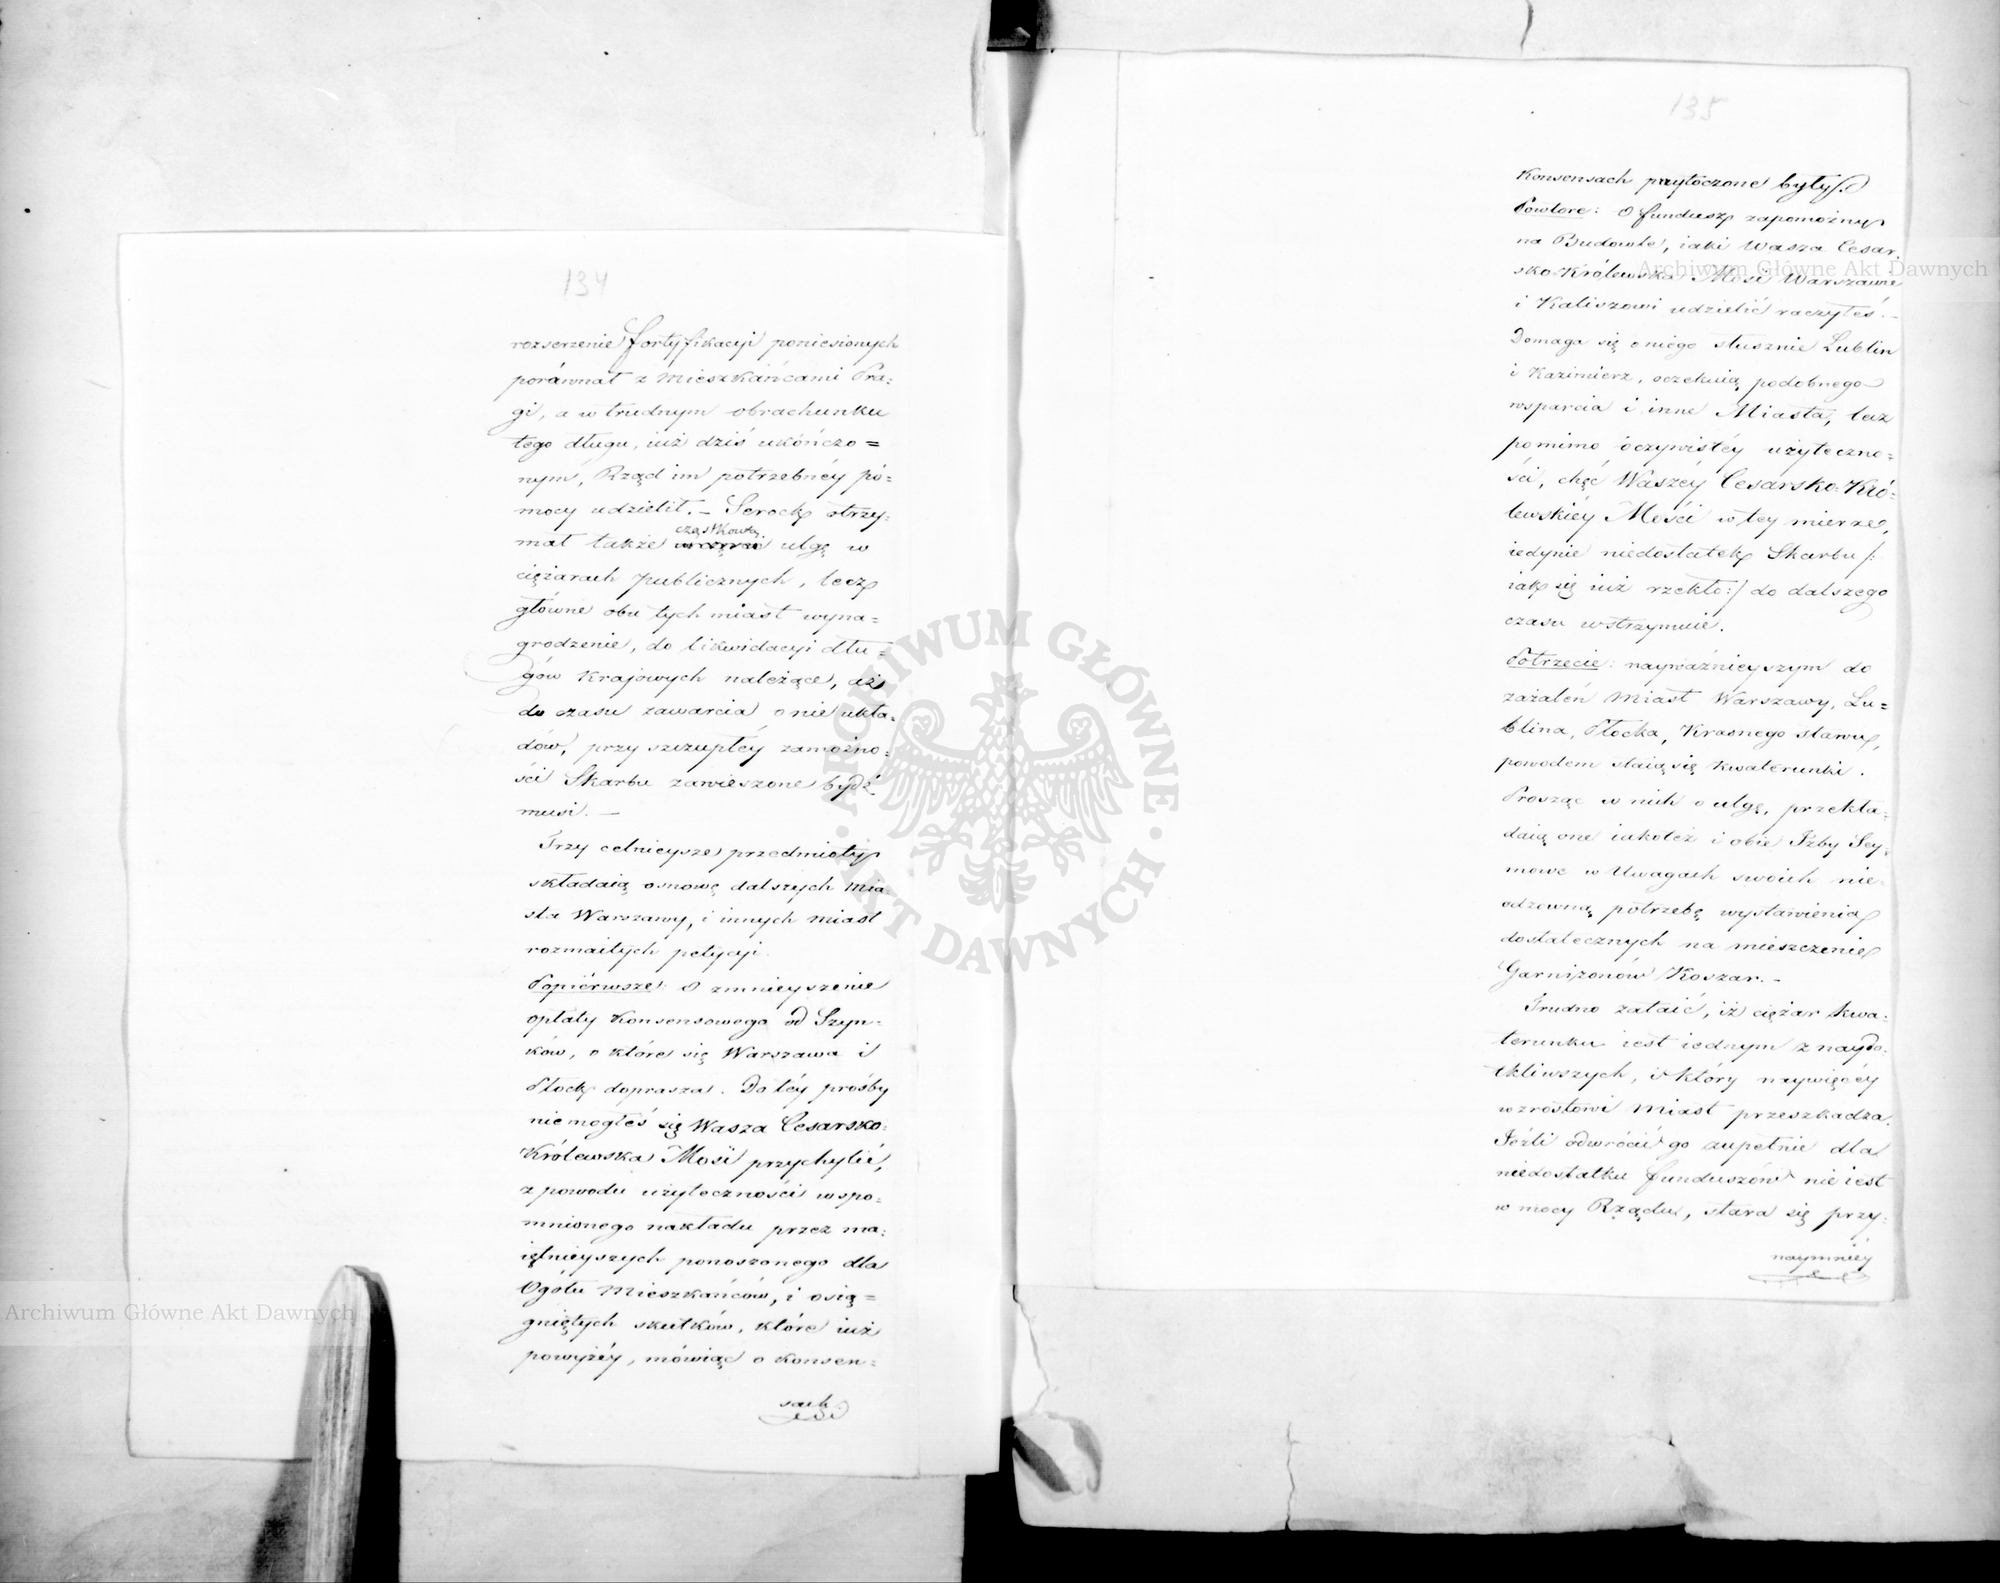 134
rozserzenie fortyfikacyi poniesionych
porównał z Mieszkańcami Pra=
gi, a w trudnym obrachunku
tego długu, iuż dziś ukończo=
nym, Rząd im potrzebnéy po=
mocy udzielił. – Serock otrzy=
cząstkową
mał także ulgę w
ciężarach publicznych, lecz
główne obu tych miast wyna=
grodzenie, do likwidacyi dłu=
gów Krajowych należące, aż
do czasu zawarcia o nie ukła=
dów, przy szczupłéy zamożno=
ści Skarbu zawieszone bydź
musi. –
Trzy celnieysze przedmioty
składaią osnowę dalszych Mia=
sta Warszawy, i innych Miast
rozmaitych petycyi.
Popiérwsze: O zmnieyszenie
opłaty Konsensowego od Szyn=
ków, o które się Warszawa i
Płock doprasza. Do téy prośby
nie mogłeś się Wasza Cesarsko=
Królewska Mość przychylić,
z powodu użyteczności wspo=
mnionego nakładu przez ma=
iętnieyszych ponoszonego dla
Ogółu Mieszkańców, i osią=
gniętych skutków, które iuż
powyżéy, mówiąc o Konsen=
sach
135
Konsensach przytoczone były.
Powtore: O fundusz zapomożny
na Budowle, iaki Wasza Cesar=
sko Królewska Mość Warszawie
i Kaliszowi udzielić raczyłeś. –
Domaga się oniego słusznie Lublin
i Kazimierz, oczekuią podobnego
wsparcia i inne Miasta, lecz
pomimo oczywistéy użyteczno=
ści, chęć Waszéy Cesarsko=Kró=
lewskiéy Mości w tey mierze,
iedynie niedostatek Skarbu /:
iak się iuż rzekło :/ do dalszego
czasu wstrzymuie.
Potrzecie: nayważnieyszym do
zażaleń Miast Warszawy, Lu=
blina, Płocka, Krasnego stawu,
powodem staią się kwaterunki.
Prosząc w nich o ulgę, przekła=
daią one iakoteż i obie Izby Sey=
mowe w Uwagach swoich nie=
odzowną potrzebę wystawienia
dostatecznych na mieszczenie
Garnizonów Koszar. –
Trudno zataić, iż ciężar kwa=
terunku iest iednym z naydo=
tkliwszych, i który naywięcéy
wzrostowi Miast przeszkadza.
Jeźli odwrócić go zupełnie dla
niedostatku funduszów nie iest
w mocy Rządu, stara się przy=
naymniéy
ARCHIWUM GŁÓWNE AKT DAWNYCH
Archiwum Główne Akt Dawnych
Archiwum Główne Akt Dawnych